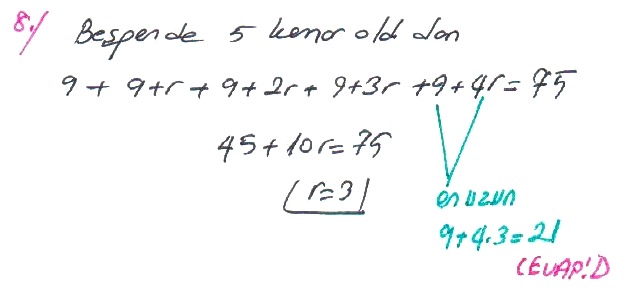 8./ Beşgende 5 kenar old dan
9 + 9+r + 9+2r + 9+3r + 9+4r = 75
45 + 10r = 75
r=3
en uzun
9+4.3=21
CEVAP: D